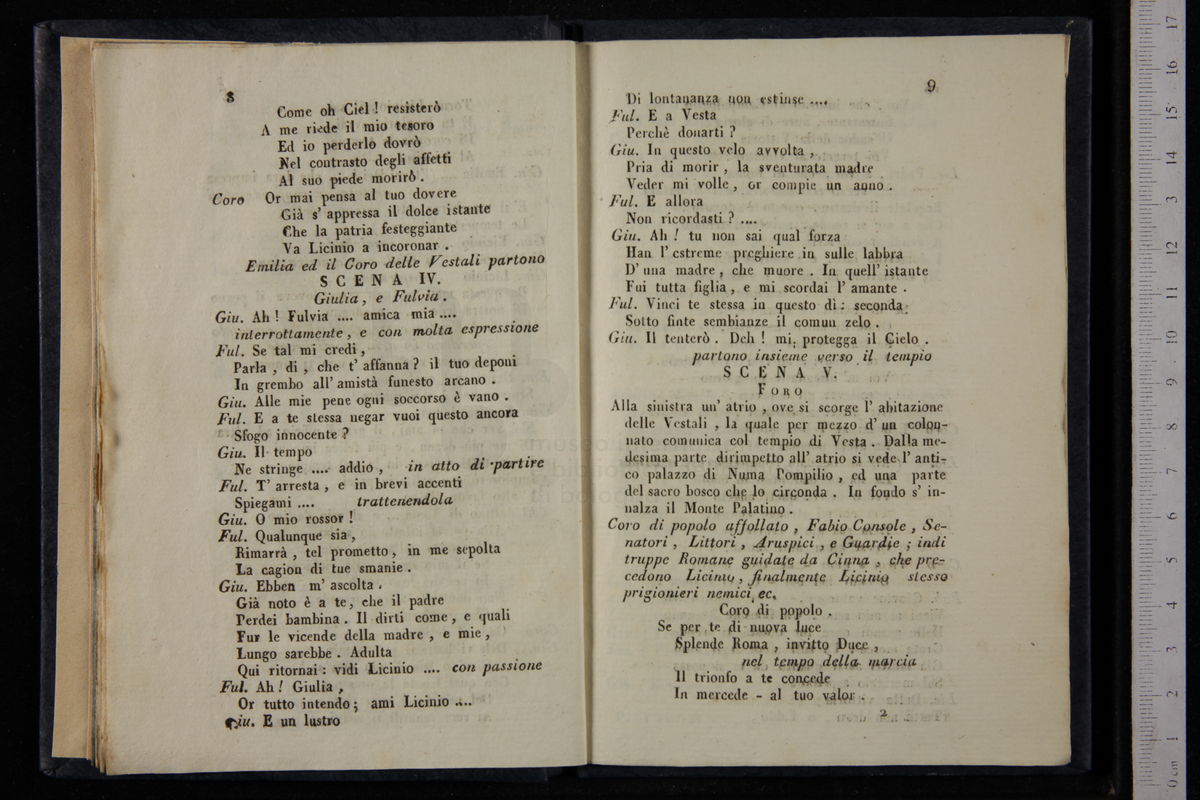 8
Come oh Ciel ! resisterò
A me riede il mio tesoro
Ed io perderlo dovrò
Nel contrasto degli affetti
Al suo piede morirò .
Coro Or mai pensa al tuo dovere
Già s' appressa il dolce istante
Che la patria festeggiante
Va Licinio a incoronar .
Emilia ed il Coro delle Vestali partono
SCENA IV.
Giulia , e Fulvia .
Giu. Ah ! Fulvia .... amica mia ....
interrottamente , e con molta espressione
Ful. Se tal mi credi ,
Parla , di , che t' affanna ? il tuo deponi
In grembo all' amistà funesto arcano .
Giu. Alle mie pene ogni soccorso è vano .
Ful. E a te stessa negar vuoi questo ancora
Sfogo innocente ?
Giu. Il tempo
Ne stringe .... addio , in atto di partire
Ful. T' arresta , e in brevi accenti
Spiegami .... trattenendola
Giu. O mio rossor !
Ful. Qualunque sia ,
Rimarrà , tel prometto , in me sepolta
La cagion di tue smanie .
Giu. Ebben m' ascolta .
Già noto è a te, che il padre
Perdei bambina . Il dirti come , e quali
Fur le vicende della madre , e mie ,
Lungo sarebbe . Adulta
Qui ritornai : vidi Licinio .... con passione
Ful. Ah ! Giulia ,
Or tutto intendo ; ami Licinio ....
Giu. E un lustro
9
Di lontananza non estinse ....
Ful. E a Vesta
Perchè donarti ?
Giu. In questo velo avvolta ,
Pria di morir , la sventurata madre
Veder mi volle , or compie un anno .
Ful. E allora
Non ricordasti ? ....
Giu. Ah ! tu non sai qual forza
Han l' estreme preghiere in sulle labbra
D' una madre , che muore . In quell' istante
Fui tutta figlia , e mi scordai l' amante .
Ful. Vinci te stessa in questo dì : seconda
Sotto finte sembianze il comun zelo .
Giu. Il tenterò . Deh ! mi protegga il Cielo .
partono insieme verso il tempio
SCENA V.
FORO
Alla sinistra un' atrio , ove si scorge l' abitazione
delle Vestali , la quale per mezzo d' un colon-
nato comunica col tempio di Vesta . Dalla me-
desima parte dirimpetto all' atrio si vede l' anti-
co palazzo di Numa Pompilio , ed una parte
del sacro bosco che lo circonda . In fondo s' in-
nalza il Monte Palatino .
Coro di popolo affollato , Fabio Console , Se-
natori , Littori , Aruspici , e Guardie ; indi
truppe Romane guidate da Cinna , che pre-
cedono Licinio , finalmente Licinio stesso
prigionieri nemici ec.
Coro di popolo .
Se per te di nuova luce
Splende Roma , invitto Duce ,
nel tempo della marcia
Il trionfo a te concede
In mercede - al tuo valor .
2
0 cm 1 2 3 4 5 6 7 8 9 10 11 12 13 14 15 16 17